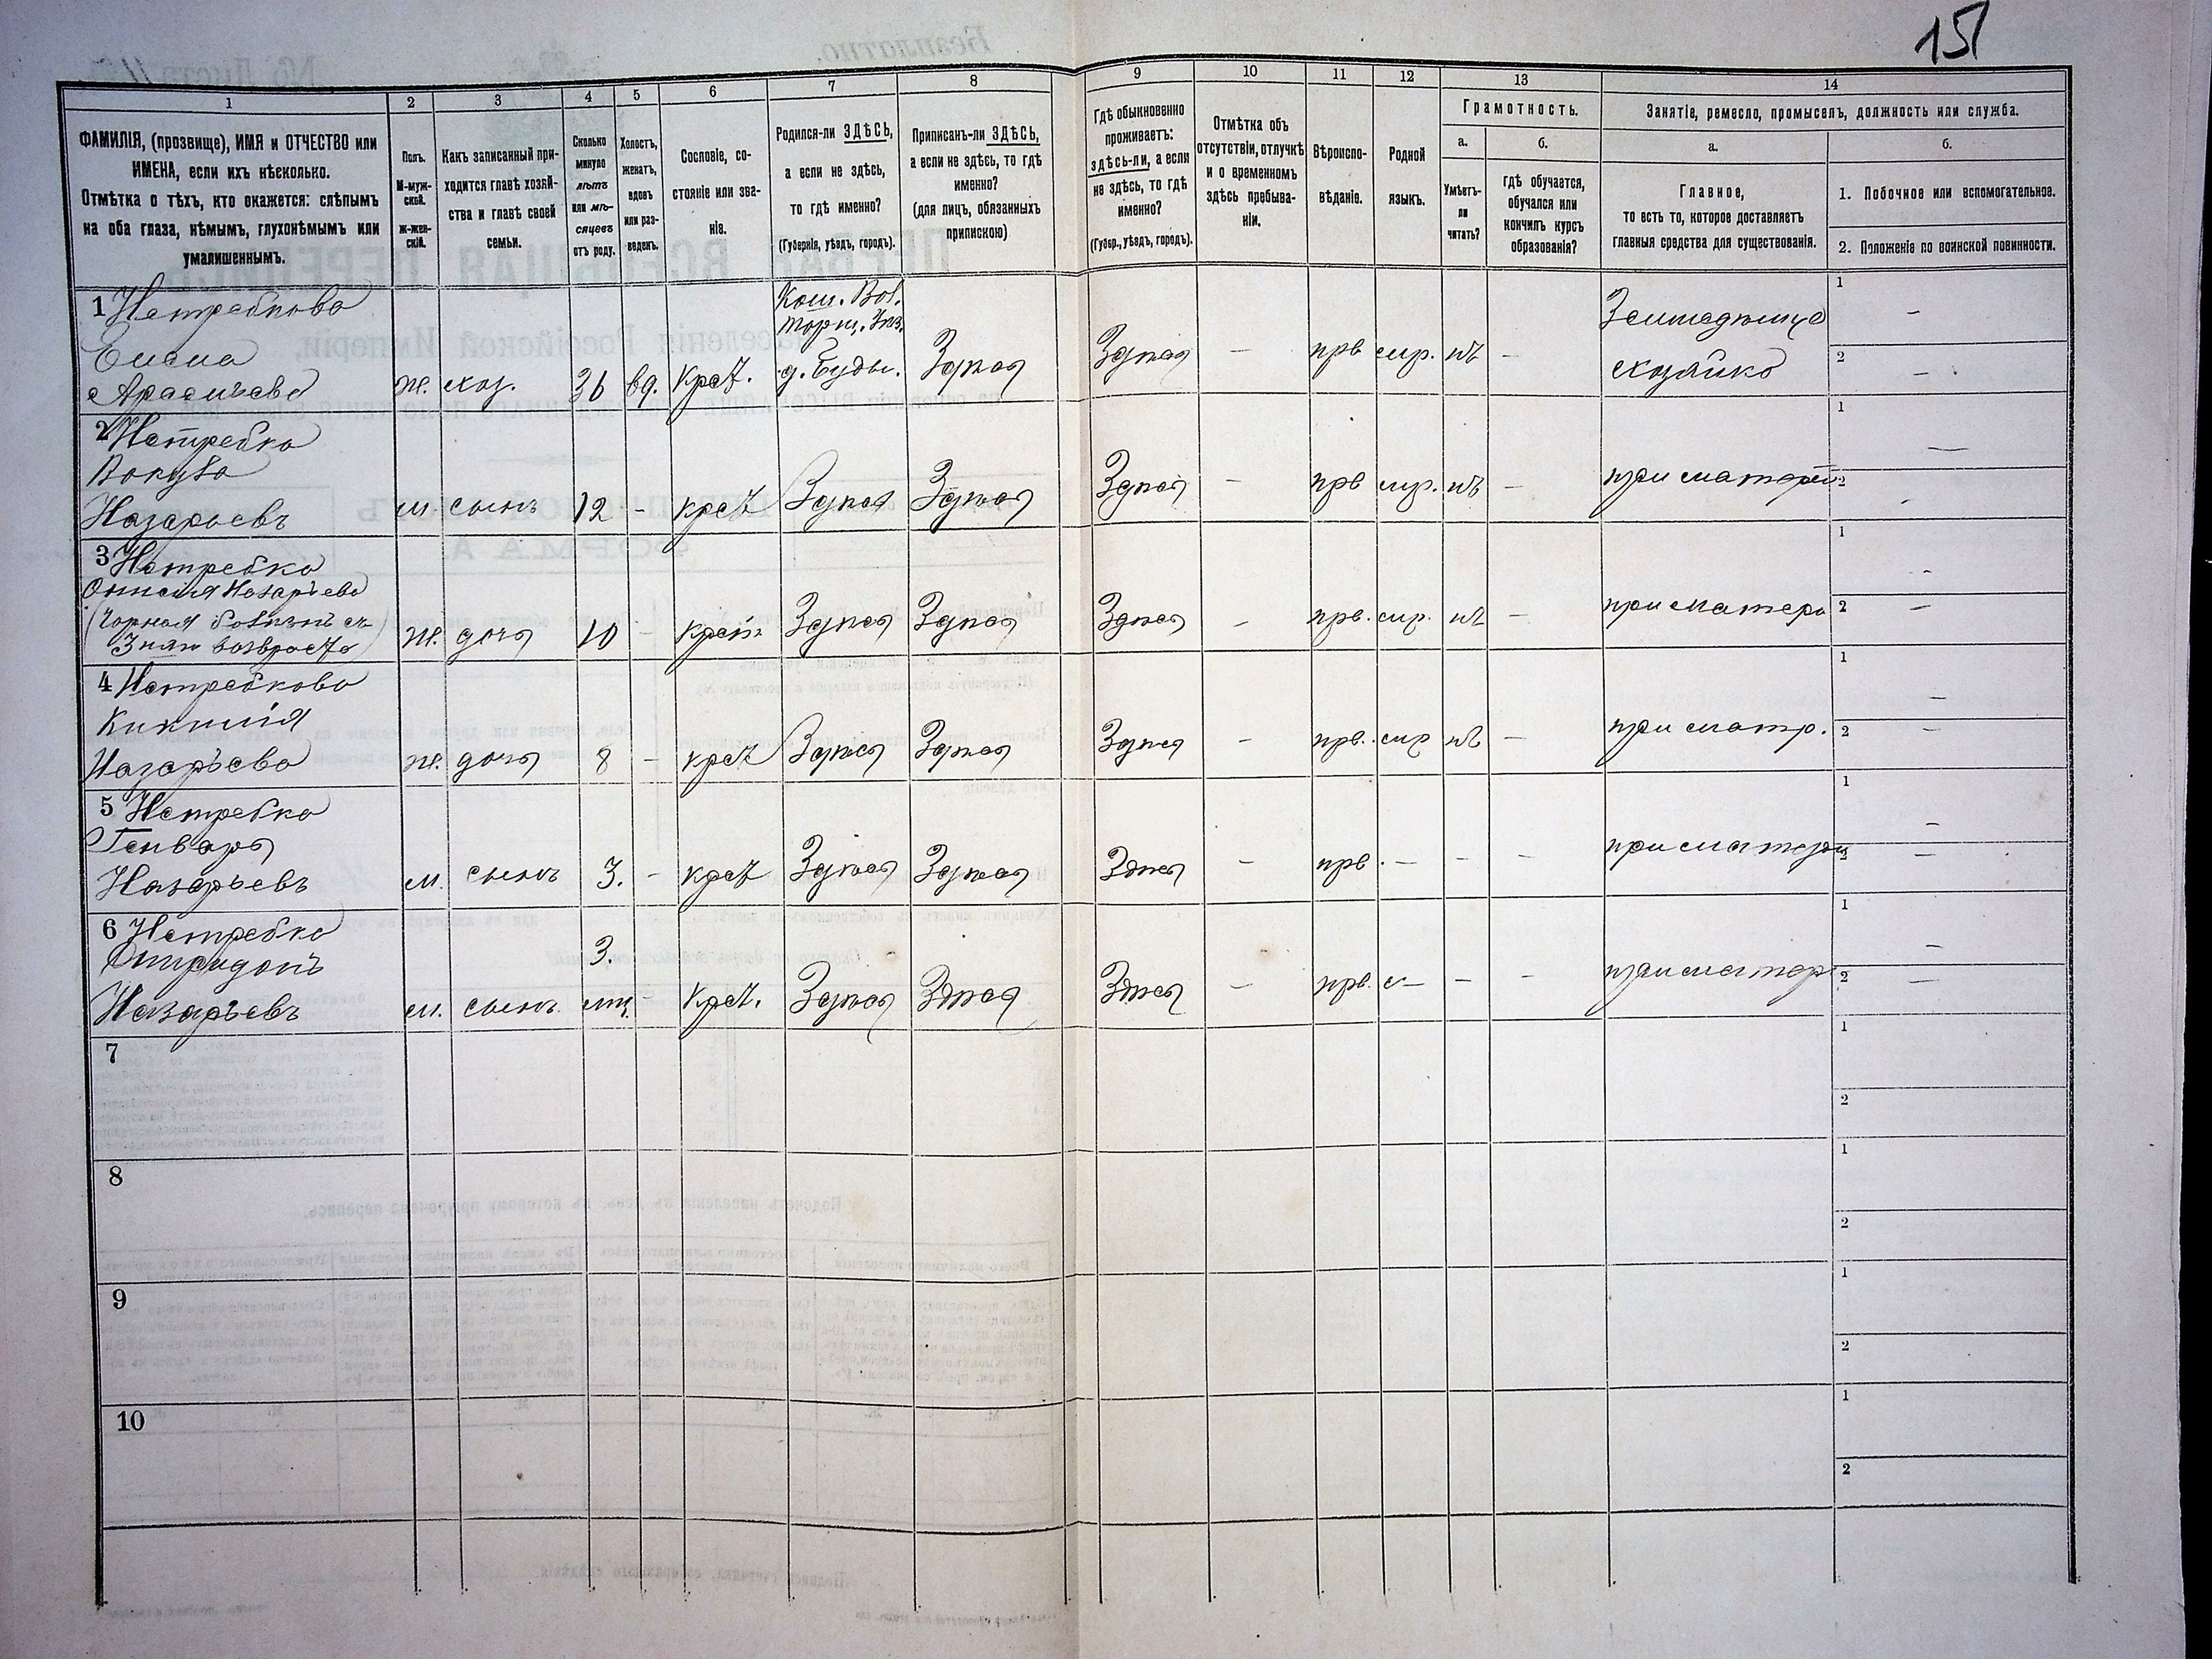 151
1
2
3
4
5
6
7
8
9
10
11
12
13
14
ФАМИЛІЯ, (прозвище), ИМЯ и ОТЧЕСТВО или
ИМЕНА, если ихъ нѣсколько.
Отмѣтка о тѣхъ, кто окажется: слѣпымъ
на оба глаза, нѣмымъ, глухонѣмымъ или
умалишеннымъ.
Полъ.
М-муж-
ской.
ж-жен-
скій.
Какъ записанный при-
ходится главѣ хозяй-
ства и главѣ своей
семьи.
Сколько
минуло
лѣтъ
или мѣ-
сяцевъ
отъ роду.
Холостъ,
женатъ,
вдовъ
или раз-
веденъ.
Сословіе, со-
стояніе или зва-
ніе.
Родился-ли ЗДѢСЬ,
а если не здѣсь,
то гдѣ именно?
(Губернія, уѣздъ, городъ).
Приписанъ-ли ЗДѢСЬ,
а если не здѣсь, то гдѣ
именно?
(для лицъ, обязанныхъ
припискою)
Гдѣ обыкновенно
проживаетъ:
здѣсь-ли, а если
не здѣсь, то гдѣ
именно?
(Губер., уѣздъ, городъ).
Отмѣтка объ
отсутствіи, отлучкѣ
и о временномъ
здѣсь пребыва-
ніи.
Вѣроиспо-
вѣданіе.
Родной
языкъ.
Грамотность.
а.
Умѣетъ-
ли
читать?
б.
гдѣ обучается,
обучался или
кончилъ курсъ
образованія?
Занятіе, ремесло, промыселъ, должность или служба.
а.
Главное,
то есть то, которое доставляетъ
главныя средства для существованія.
б.
1. Побочное или вспомогательное.
2. Положеніе по воинской повинности.
1 Нетребкова
Герасимъева
ж. хоз. 36 вд. Крест.
д. Буды.
Здѣсь Здѣсь — прв мр. нѣтъ —
хозяйка
1 —
2 —
2 Нетребко
Вакула
Назарьевъ
м. сынъ 12 - крест Здѣсь Здѣсь Здѣсь — прв мр. нѣтъ — при матери
1 —
2
3 Нетребко
Назарьева
ж. дочь 10 - крест Здѣсь Здѣсь Здѣсь — прв. мр. нѣтъ — при матери
1 -
2 —
4 Нетребкова
Киклія
Назарьева
ж. дочь 8 — крест Здѣсь Здѣсь Здѣсь — прв. мр нѣтъ — при матер.
1 —
2 —
5 Нетребко
Генварь
Назарьевъ
м. сынъ 3. - крест Здѣсь Здѣсь Здѣсь — прв. — - - при матери
1 —
2 —
6 Нетребко
Спиридонъ
Назарьевъ
м. сынъ 3. мц. - Крест. Здѣсь Здѣсь Здѣсь — прв. — - - при матер
1 —
2 —
7
1
2
8
1
2
9
1
2
10
1
2